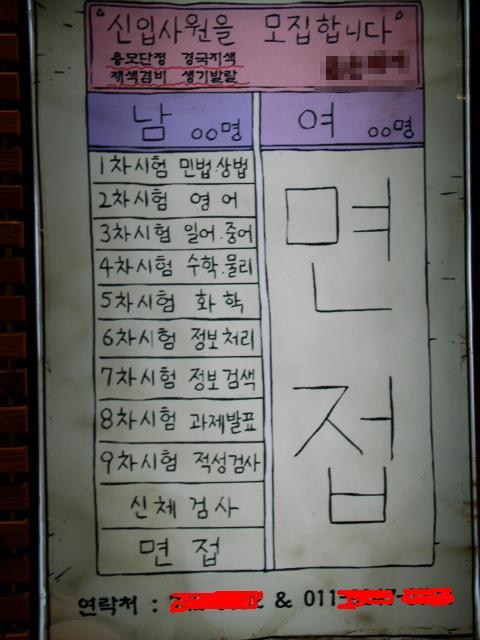 "신입사원을 모집합니다"
용모단정 경국지색
재색겸비 생기발랄
남 00명
여 00명
1차시험 민법.상법
2차시험 영어
3차시험 일어.중어
4차시험 수학.물리
5차시험 화학
6차시험 정보처리
7차시험 정보검색
8차시험 과제발표
9차시험 적성검사
신체검사
면접
면접
연락처 : & 011-